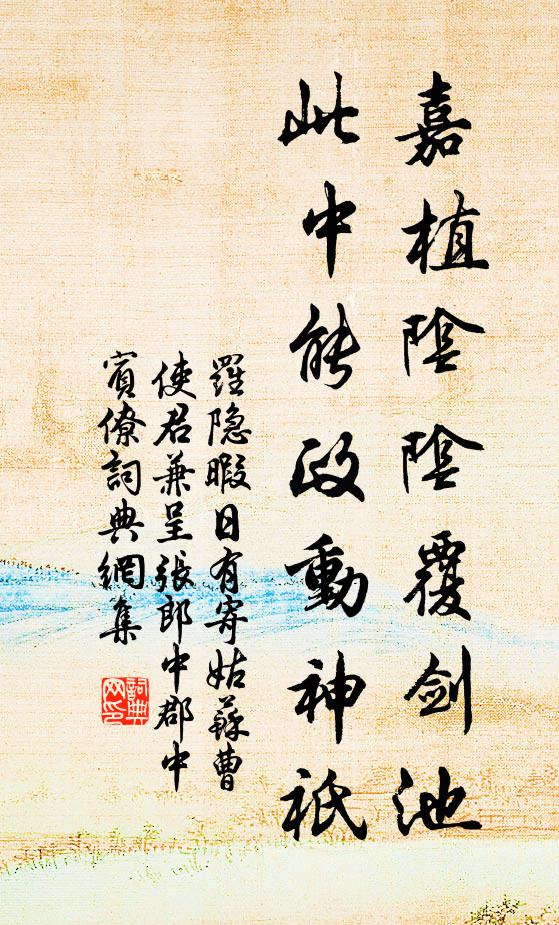 嘉植陰陰覆劍池
此中能政動神祇
羅隐暇日有寄姑蘇曹
使君兼呈張郎中郡中
賓僚詞典網集
詞典
网印